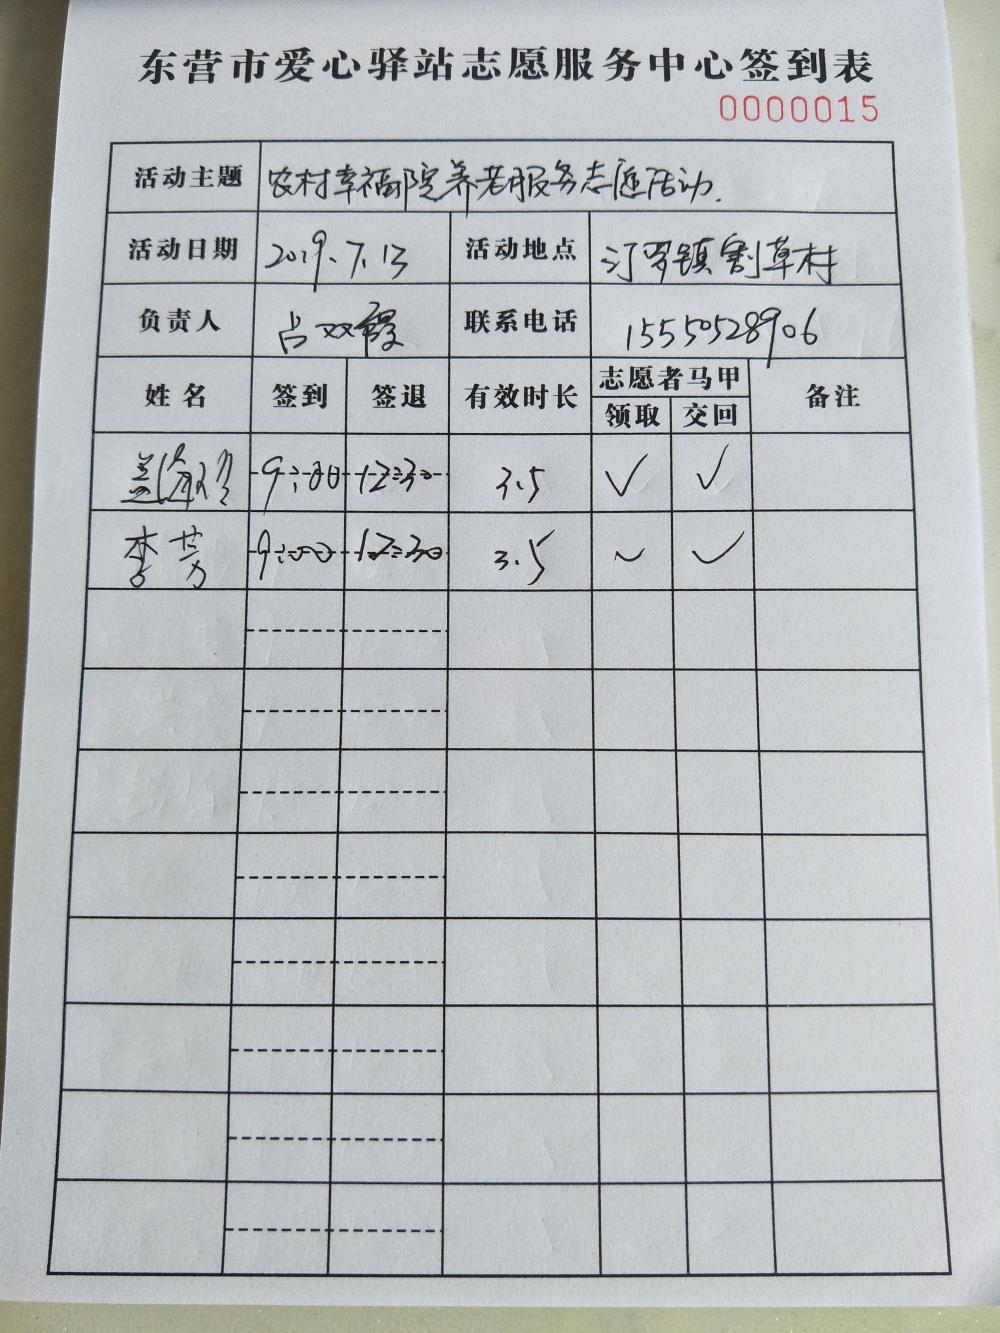 东营市爱心驿站志愿服务中心签到表
0000015
活动主题 农村幸福院养老服务志愿活动.
活动日期 2019.7.13 活动地点 汀罗镇割草村
负责人 占双霞 联系电话 15550528906
姓名 签到 签退 有效时长 志愿者马甲 备注
领取 交回
盖海珍 9:00 12:30 3.5 ✓ ✓
李芳 9:00 12:30 3.5 ~ ✓